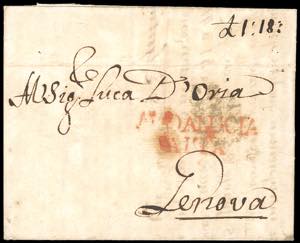 £1:18:
Al Sig. Luca D'Oria
ANDALUCIA
BAXA
Genova